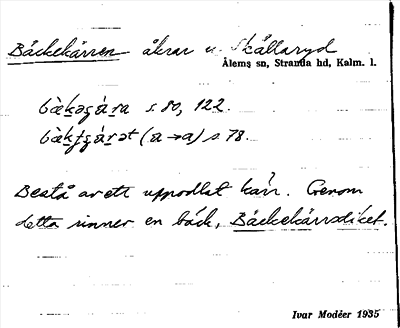 Bäckekärren åkrar u. Skällaryd
Ålems sn, Stranda hd, Kalm. l.
s. 80, 122.
s. 78.
Består av ett uppodlat kärr. Genom
detta rinner en bäck, Bäckekärrsdiket.
Ivar Modéer 1935